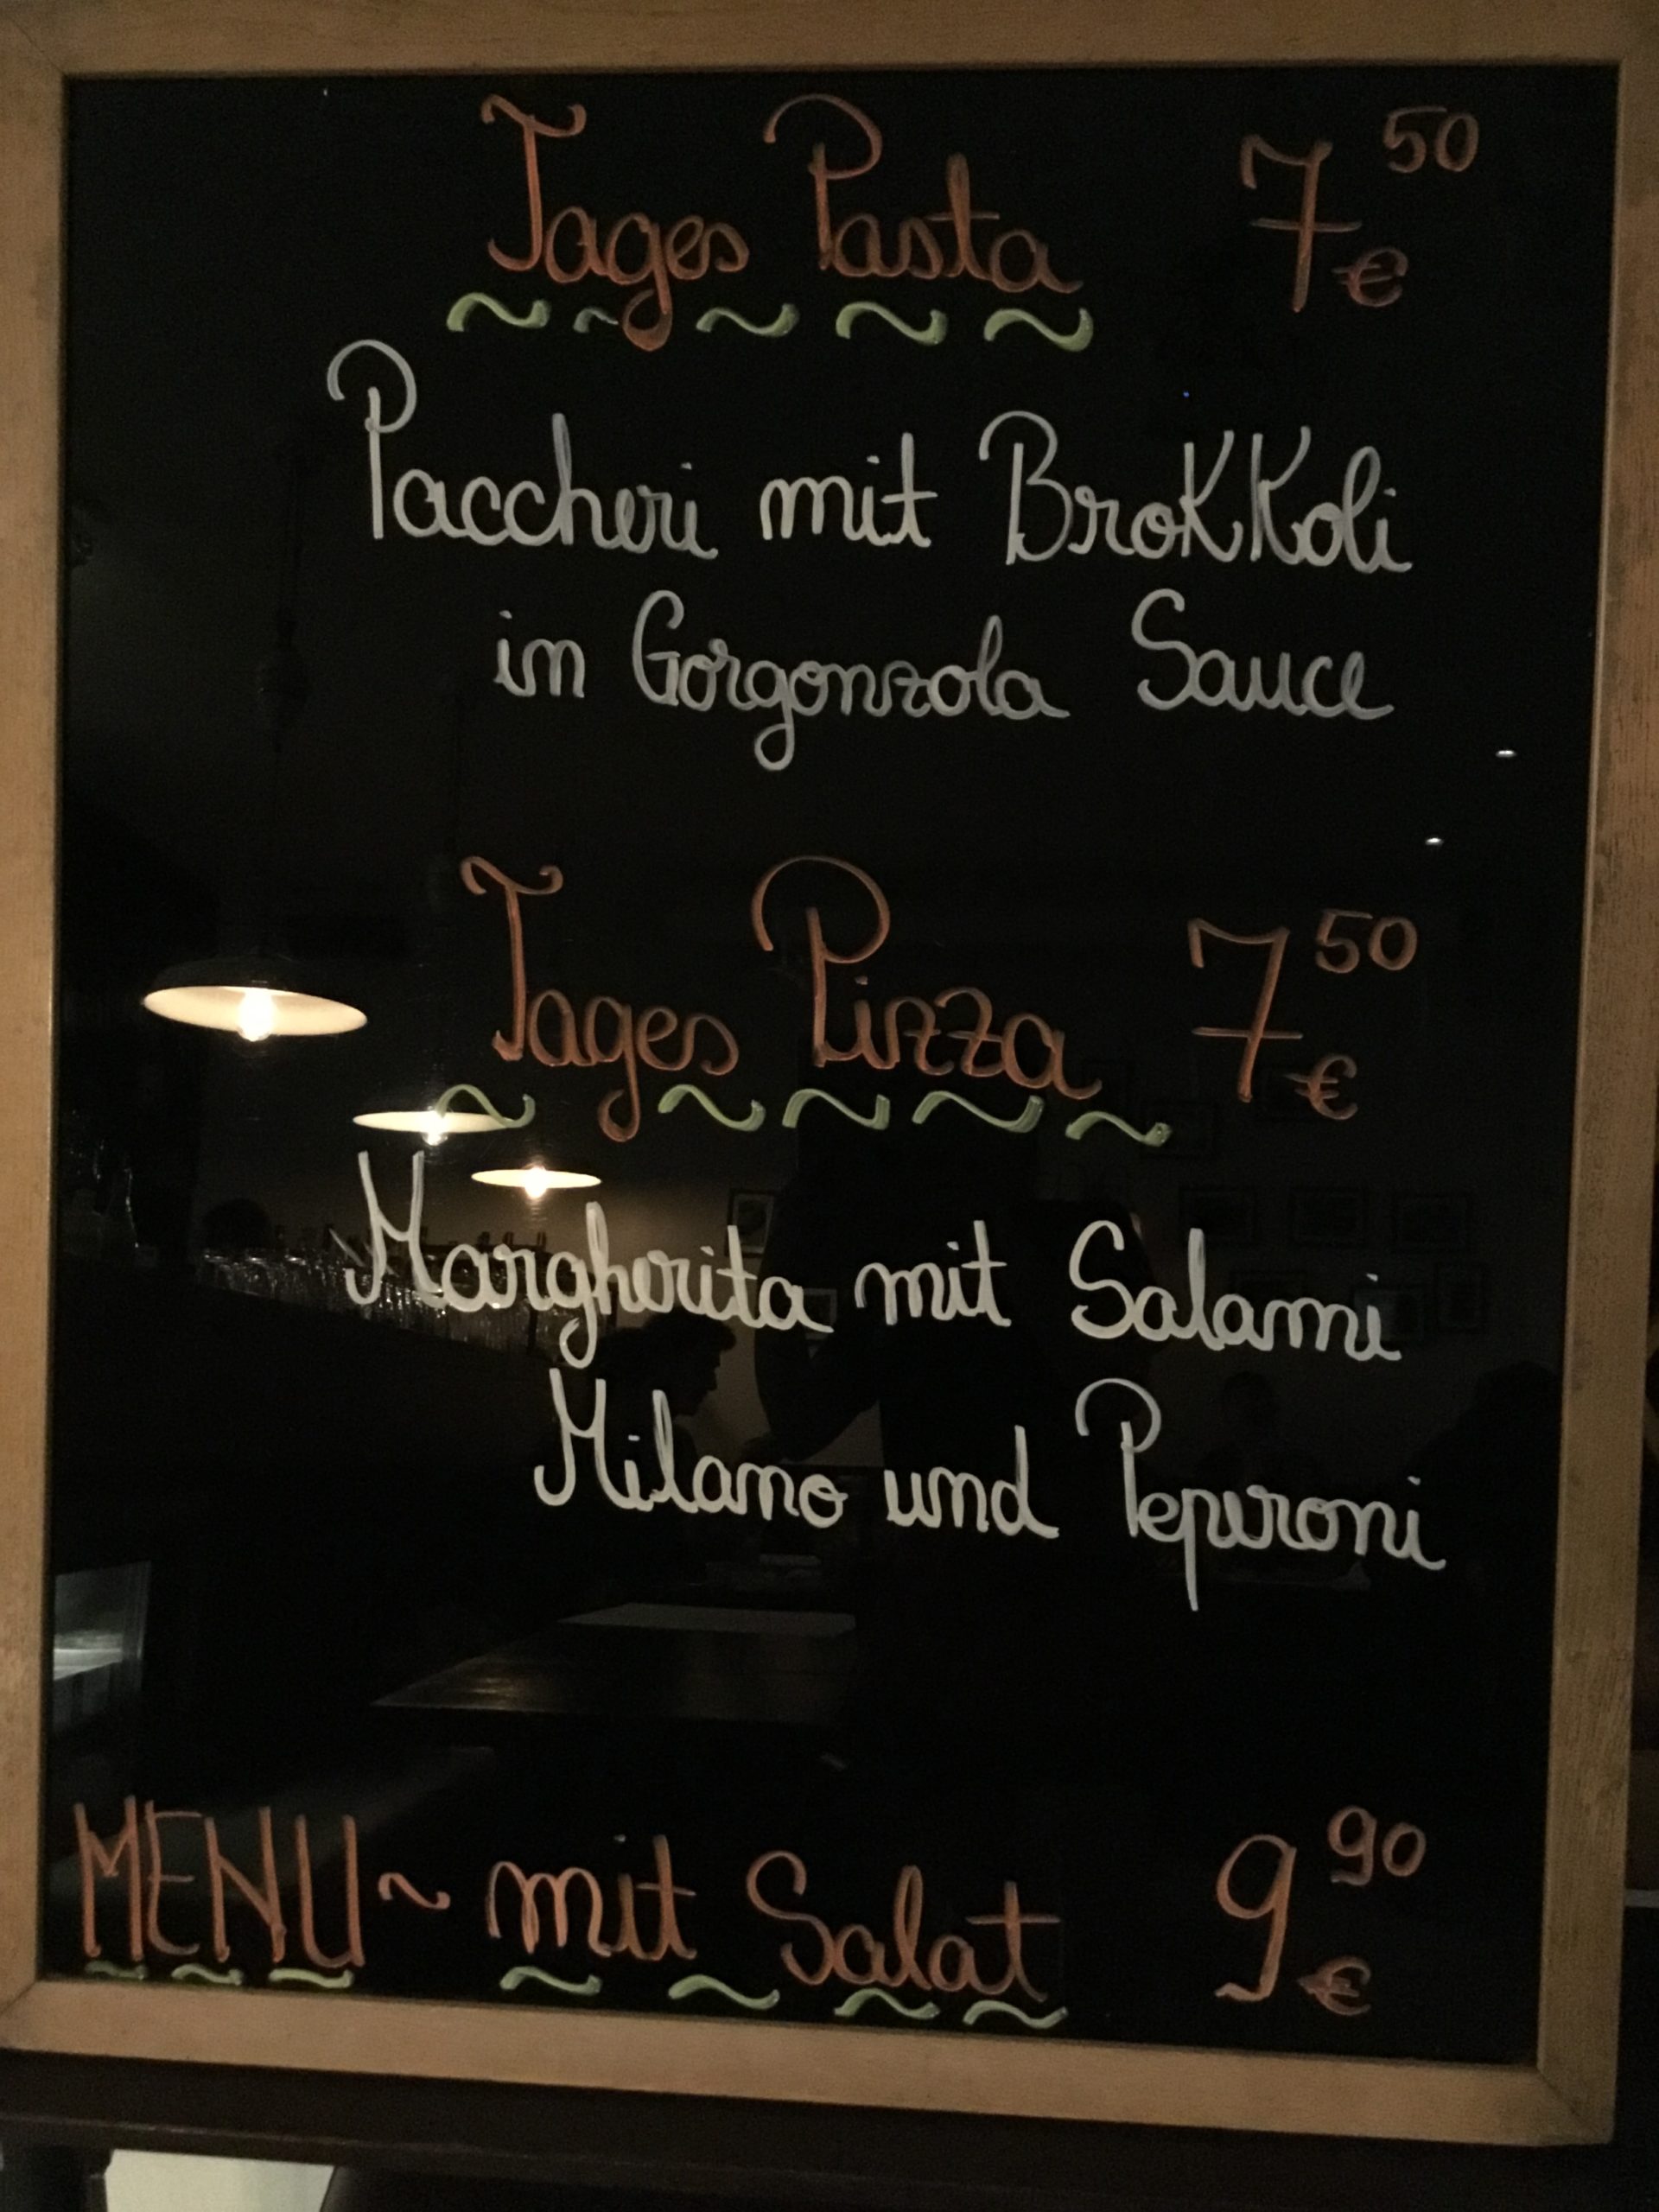 Tages Pasta 750 €
Paccheri mit Brokkoli
in Gorgonzola Sauce
Tages Pizza 750 €
Margherita mit Salami
Milano und Peperoni
MENU ~ mit Salat 990 €